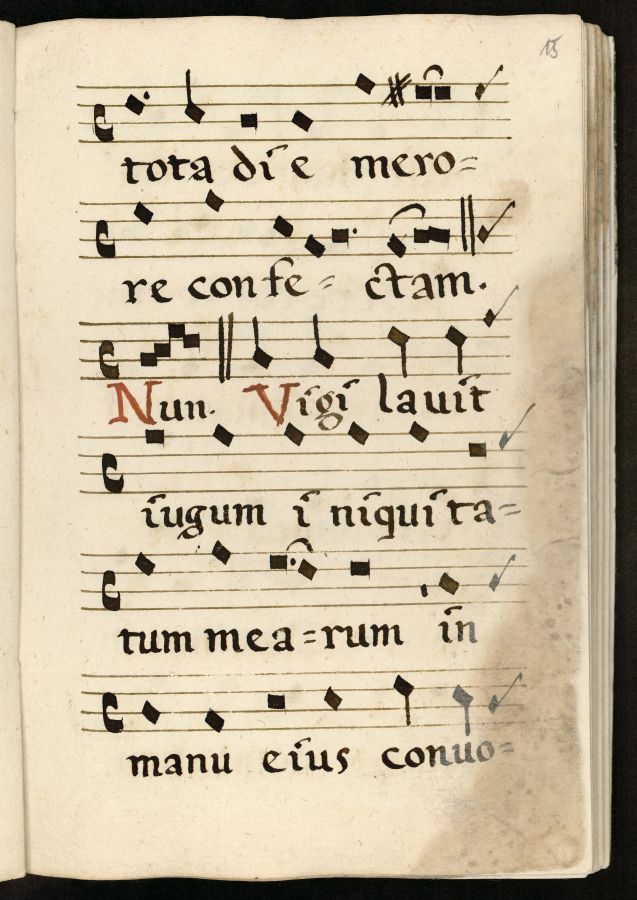 15
tota die mero=
re confe= ctam.
Nun. Vigilavit
iugum iniquita=
tum mea=rum in
manu eius convo=